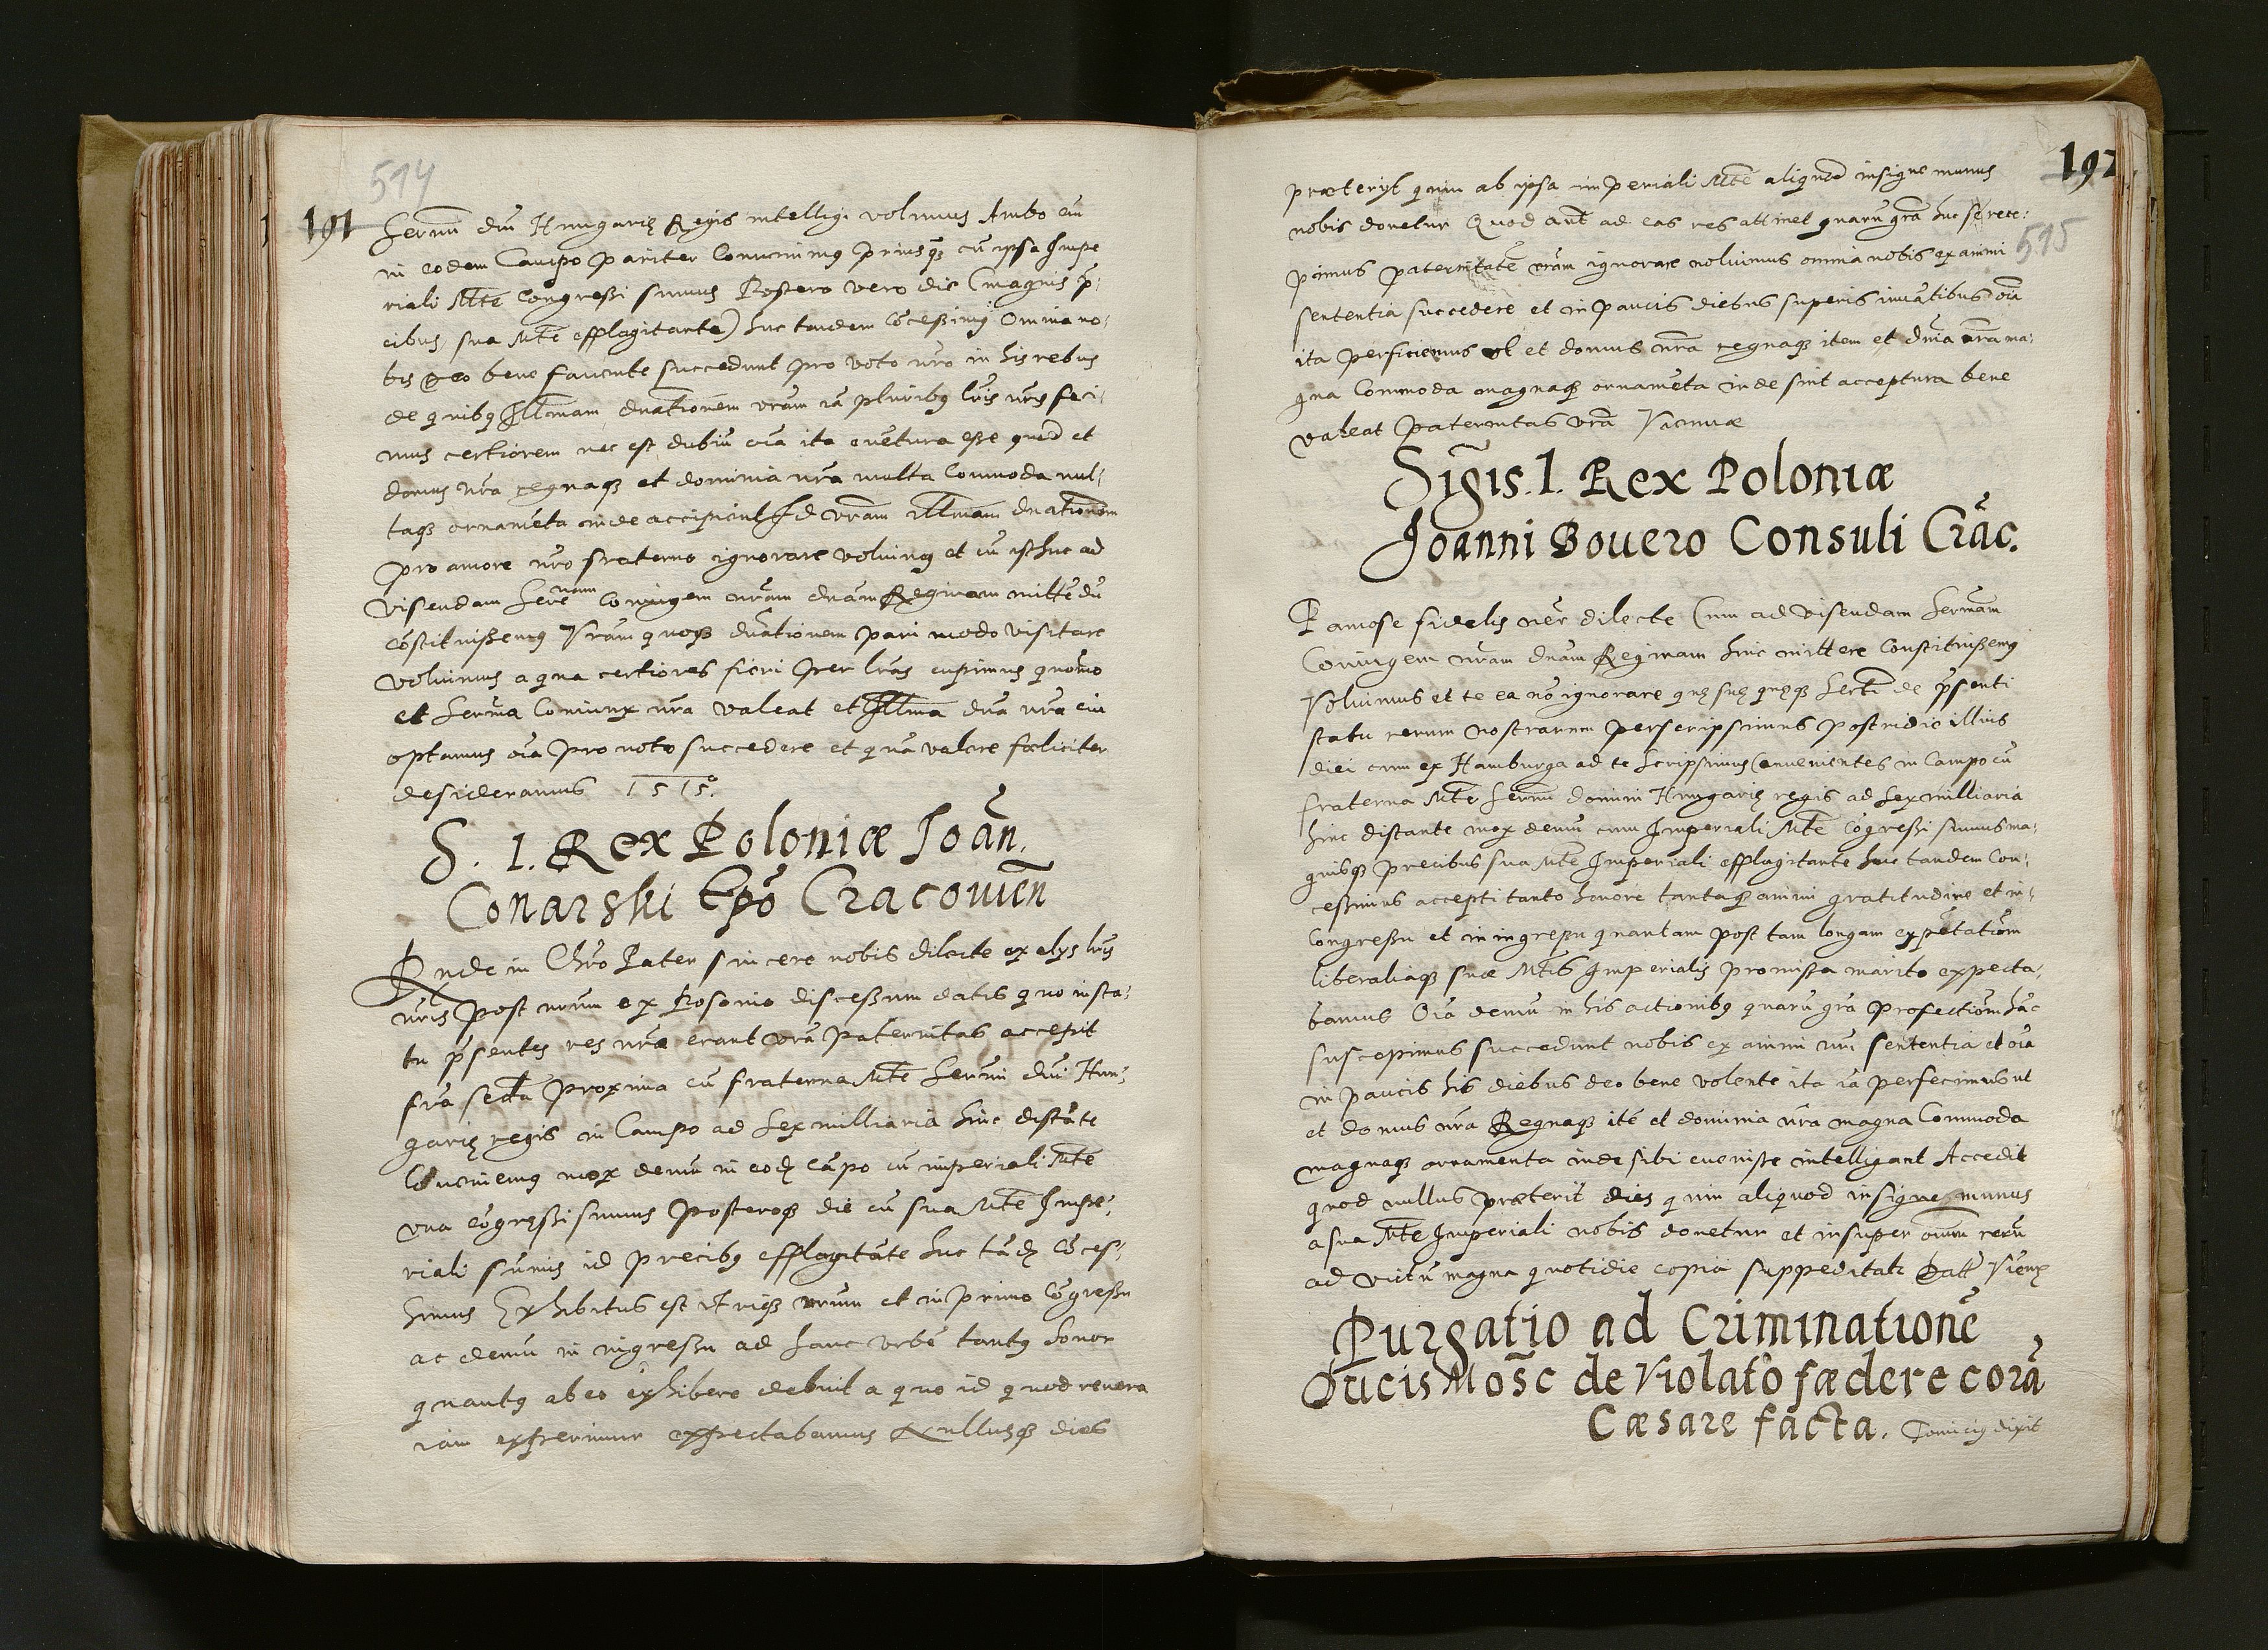 514
191
Sermi dni Hungarię Regis intelligi volumus Ambo eni
in eodem Campo pariter Convenimus priusq cu ipsa Impe
riali Mte Congressi sumus Postero vero die (magnis p̄-
cibus, sua Mte efflagitante) huc tandem Cōcessimus Omnia no-
bis Deo bene favente succedunt pro voto nro in his rebus
de quibus Illmam dnationem vram iā pluribus lris nris feci-
mus certiorem nec est dubiū oīa ita evētura esse quod et
domus nra regnaq et dominia nra multa Commoda mul-
taq ornamēta inde accipient Id vram Illmam dnationem
pro amore nro fraterno ignorare noluimus et cū isthuc ad
visendam Serenam Coniugem nram dnam Reginam mittēdū
cōstituissemus Vram quoq dnationem pari modo visitare
voluimus a qua certiores fieri per lras cupimus quomo
et Serma Coniunx nra valeat et Illma dna vra cui
optamus oīa pro voto succedere et quā valere fœliciter
desideramus 1515.
S. 1. Rex Poloniæ Ioān.
Conarski Epō Cracouień
Rnde in Chro Pater sincere nobis dilecte ex alys lris
nris post nrum ex Posonio discessum datis quo in sta-
tu p̄sentes res nræ erant vra paternitas accepit
fra secda proxima cū fraterna Mte Sermi dni Hun-
garię regis in Campo ad sex milliaria hinc distāte
Cōvenimus mox demū in eodē cāpo cū imperiali Mte
una cōgressi sumus posteroq die cū sua Mte Impe-
riali sumis id precibus efflagitāte huc tādē Cōces-
simus Exhibitus est utriq nrum et in primo Cōgressu
ac demū in ingressu ad hanc urbē tantus honor
quantus ab eo exhiberi debuit a quo id quod revera
iam experimur expectabamus Nullusq dies
197
515
præteryt quin ab ipsa imperiali Mte aliquod insigne munus
nobis donetur Quod aut ad eas res attinet quarū gra huc se rece-
pimus paternitatē vram ignorare nolumus omnia nobis ex animi
sententia succedere et in paucis diebus superis iuvātibus oīa
ita perficiemus ut et domus nra regnaq item et dnia nra ma-
gna Commoda magnaq ornamēta inde sint acceptura bene
valeat paternitas vra Viennæ
Sigis. 1. Rex Poloniæ
Joanni Bouero Consuli Crac.
Famose fidelis nēr dilecte Cum ad visendam Sermam
Coniugem nram dnam Reginam hinc mittere Constituissemus
Voluimus et te ea nō ignorare quę suę quoq Serti de p̄senti
statu rerum nostrarum perscripsimus postridie illius
diei cum ex Hamburga ad te Scripsimus Convenientes in Campo cū
fraterna Mte Sermi domini Hungarię regis ad sex milliaria
hinc distante mox demū cum Imperiali Mte Cōgressi sumus ma-
gnisq precibus sua Mte Imperiali efflagitante huc tandem Con-
cessimus accepti tanto honore tantaq animi gratitudine et in
Congressu et in ingressu quantam post tam longam expētationē
liberaliaq suæ Mtis Imperialis promissa merito expecta-
bamus Oīa demū in his actionibus quarū gra profectionē hāc
suscepimus succedunt nobis ex animi nri sententia et oīa
in paucis his diebus deo bene volente ita iā perfecimus ut
et domus nra Regnaq itē et dominia nra magna Commoda
magnaq ornamenta inde sibi evenisse intelligant Accedit
quod nullus præterit dies quin aliquod insigne munus
a sua Mte Imperiali nobis donetur et insuper omnū rerū
ad victū magna quotidie copia suppeditatr Datt Vienę
Purgatio ad Criminationē
Ducis Mosc de Violato fœdere corā
Cæsare facta. Tomicius dixit